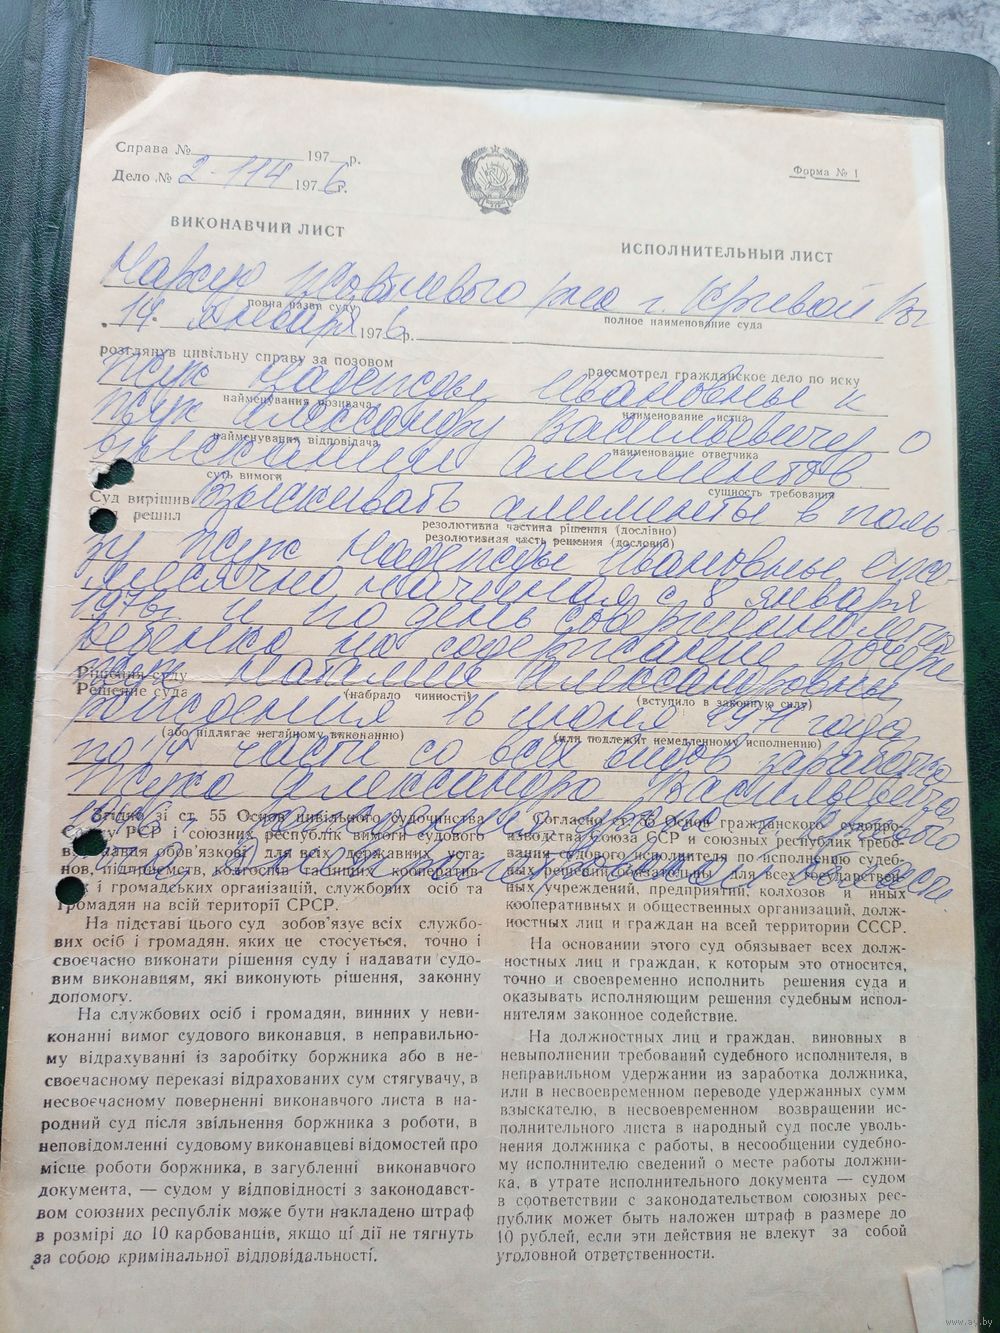 Справа № 197 р.
Дело № 2-114 1976 г.
Форма № 1
ВИКОНАВЧИЙ ЛИСТ
ИСПОЛНИТЕЛЬНЫЙ ЛИСТ
Нарсуд р-на г. Кривой
повна назва суду
полное наименование суда
14 января 1976 р.
розглянув цивільну справу за позовом
рассмотрел гражданское дело по иску
Жук Надежды Ивановны к
найменування позивача
наименование истца
Жук Александру Васильевичу о
найменування відповідача
наименование ответчика
взыскании алиментов
суть вимоги
сущность требования
Суд вирішив
Суд решил
Взыскивать алименты в поль-
резолютивна частина рішення (дослівно)
резолютивная часть решения (дословно)
зу Жук Надежды Ивановны еже-
месячно начиная с 8 января
1976г и по день совершеннолетия
ребенка на содержание дочери
Рішення суду
Жук Наталии Александровны
Решение суда
(набрало чинності)
(вступило в законную силу)
рождения 16 июня 1971 года
(або підлягає негайному виконанню)
(или подлежит немедленному исполнению)
по 1/4 части со всех видов заработка
Жука Александра Васильевича
Згідно зі ст. 55 Основ цивільного судочинства
Союзу РСР і союзних республік вимоги судового
виконавця обов'язкові для всіх державних уста-
нов, підприємств, колгоспів та інших кооператив-
них і громадських організацій, службових осіб та
громадян на всій території СРСР.
На підставі цього суд зобов'язує всіх службо-
вих осіб і громадян, яких це стосується, точно і
своєчасно виконати рішення суду і надавати судо-
вим виконавцям, які виконують рішення, законну
допомогу.
На службових осіб і громадян, винних у неви-
конанні вимог судового виконавця, в неправильно-
му відрахуванні із заробітку боржника або в не-
своєчасному переказі відрахованих сум стягувачу, в
несвоєчасному поверненні виконавчого листа в на-
родний суд після звільнення боржника з роботи, в
неповідомленні судовому виконавцеві відомостей про
місце роботи боржника, в загубленні виконавчого
документа, — судом у відповідності з законодавст-
вом союзних республік може бути накладено штраф
в розмірі до 10 карбованців, якщо ці дії не тягнуть
за собою кримінальної відповідальності.
Согласно ст. 55 Основ гражданского судопро-
изводства Союза ССР и союзных республик требо-
вания судового исполнителя по исполнению судеб-
ных решений обязательны для всех государствен-
ных учреждений, предприятий, колхозов и иных
кооперативных и общественных организаций, долж-
ностных лиц и граждан на всей территории СССР.
На основании этого суд обязывает всех долж-
ностных лиц и граждан, к которым это относится,
точно и своевременно исполнить решения суда и
оказывать исполняющим решения судебным испол-
нителям законное содействие.
На должностных лиц и граждан, виновных в
невыполнении требований судебного исполнителя, в
неправильном удержании из заработка должника,
или в несвоевременном переводе удержанных сумм
взыскателю, в несвоевременном возвращении ис-
полнительного листа в народный суд после уволь-
нения должника с работы, в несообщении судебно-
му исполнителю сведений о месте работы должни-
ка, в утрате исполнительного документа — судом
в соответствии с законодательством союзных рес-
публик может быть наложен штраф в размере до
10 рублей, если эти действия не влекут за собой
уголовной ответственности.
www.ay.by